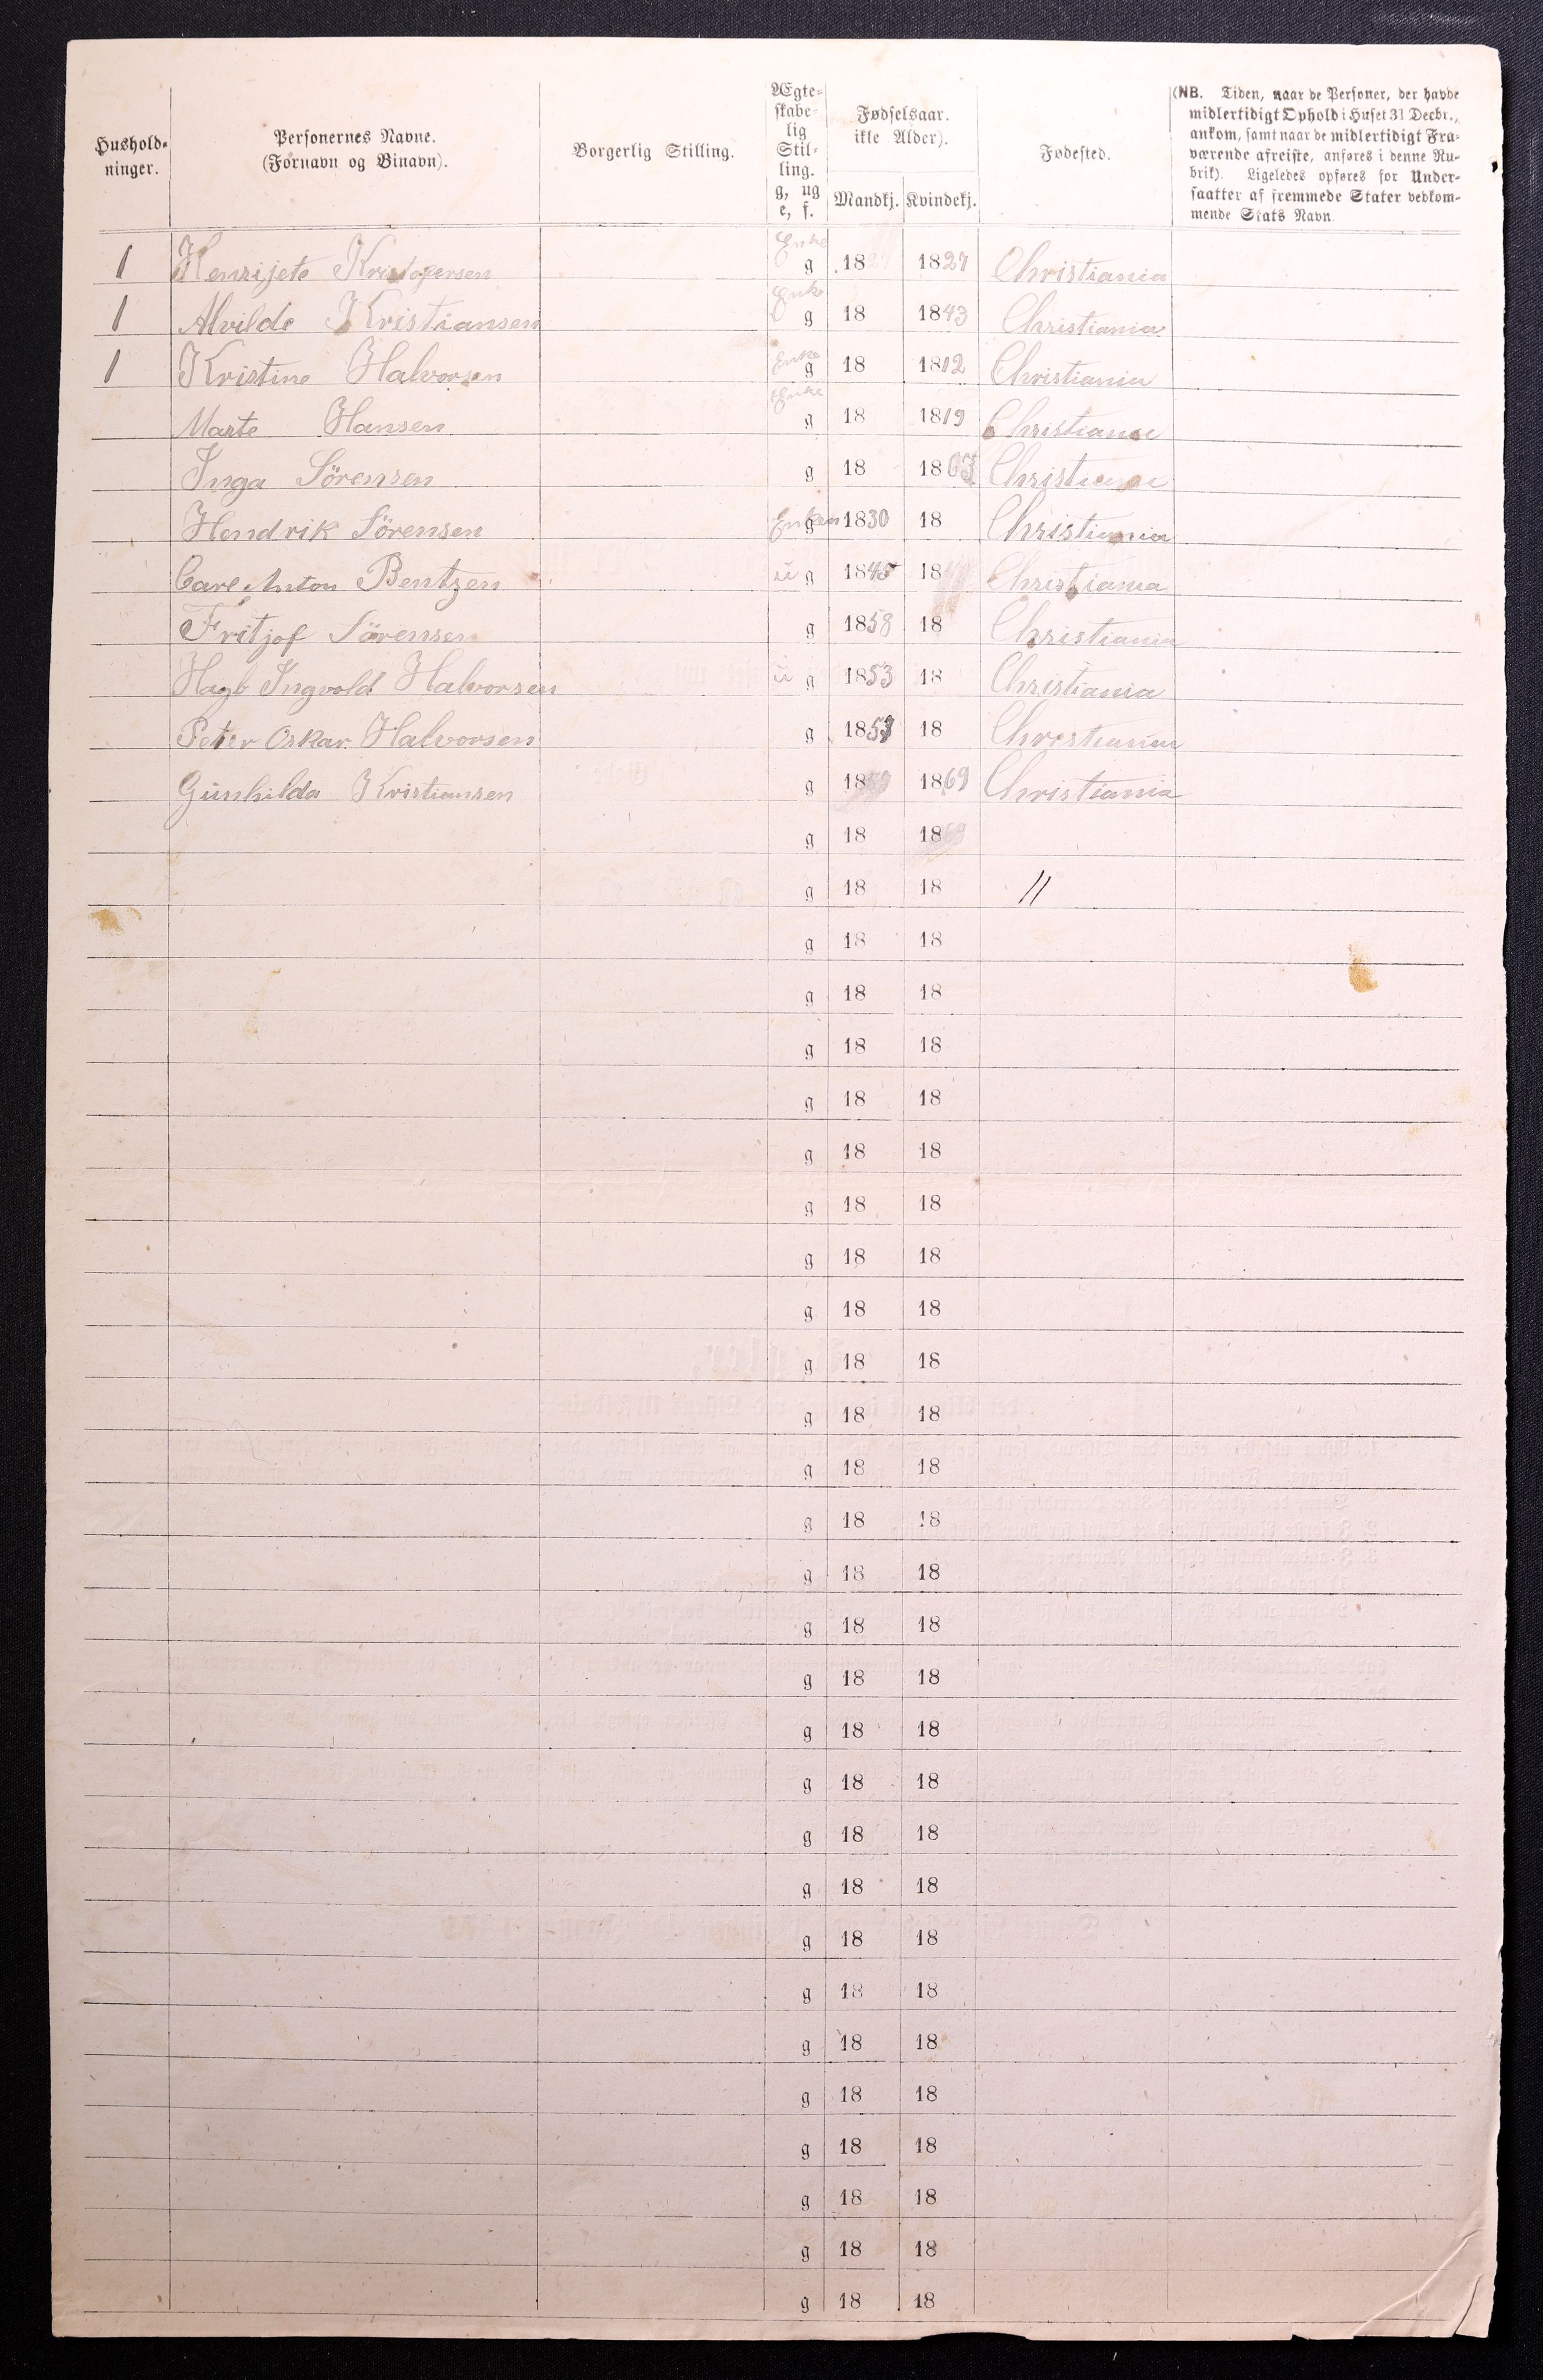 Hushold-
ninger.
Personernes Navne.
(Fornavn og Binavn).
Borgerlig Stilling.
Ægte-
skabe-
lig
Stil-
ling.
g, ug
e, f.
Fødselsaar.
ikke Alder).
Mandkj. Kvindekj.
Fødested.
(NB. Tiden, naar de Personer, der havde
midlertidigt Ophold i Huset 31 Decbr.,
ankom, samt naar de midlertidigt Fra-
værende afreiste, anføres i denne Ru-
brik). Ligeledes opføres for Under-
saatter af fremmede Stater vedkom-
mende Stats Navn.
1 Henrijete Kristofersen Enke g 18 1827 Christiania
1 Alvilde Kristiansen Enke g 18 1843 Christiania
1 Kristine Halvorsen Enke g 18 1812 Christiania
Marte Hansen Enke g 18 1819 Christiania
Inga Sörensen g 18 1863 Christiania
Hendrik Sörensen g 1830 18 Christiania
Carl Anton Bentzen ü g 1845 18 Christiania
Fritjof Sörensen g 1858 18 Christiania
Ingvold Halvorsen ü g 1853 18 Christiania
Peter Oskar Halvorsen g 185 18 Christiania
Günhilda Kristiansen g 18 1869 Christiania
g 18 1869
g 18 18 "
g 18 18
g 18 18
g 18 18
g 18 18
g 18 18
g 18 18
g 18 18
g 18 18
g 18 18
g 18 18
g 18 18
g 18 18
g 18 18
g 18 18
g 18 18
g 18 18
g 18 18
g 18 18
g 18 18
g 18 18
g 18 18
g 18 18
g 18 18
g 18 18
g 18 18
g 18 18
g 18 18